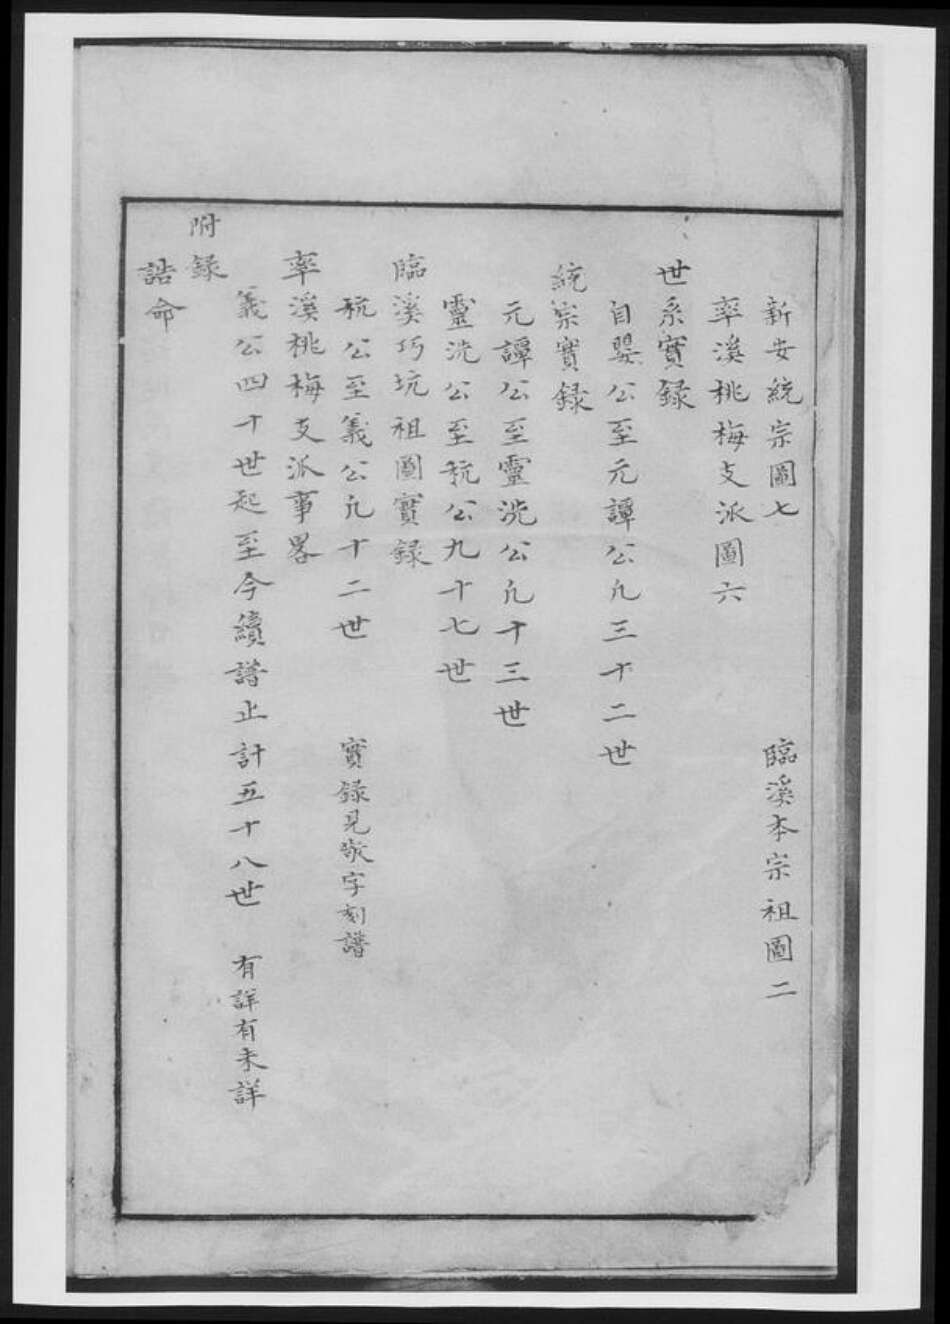 新安統宗圖七　臨溪本宗祖圖二
率溪桃梅支派圖六
世系實録
自嬰公至元譚公凢三十二世
統宗實録
元譚公至靈洗公凢十三世
靈洗公至秔公九十七世
臨溪巧坑祖圖實録
秔公至義公凢十二世　實録見嵗字刻譜
率溪桃梅支派事畧
義公四十世起至今續譜止計五十八世　有詳有未詳
附録
誥命